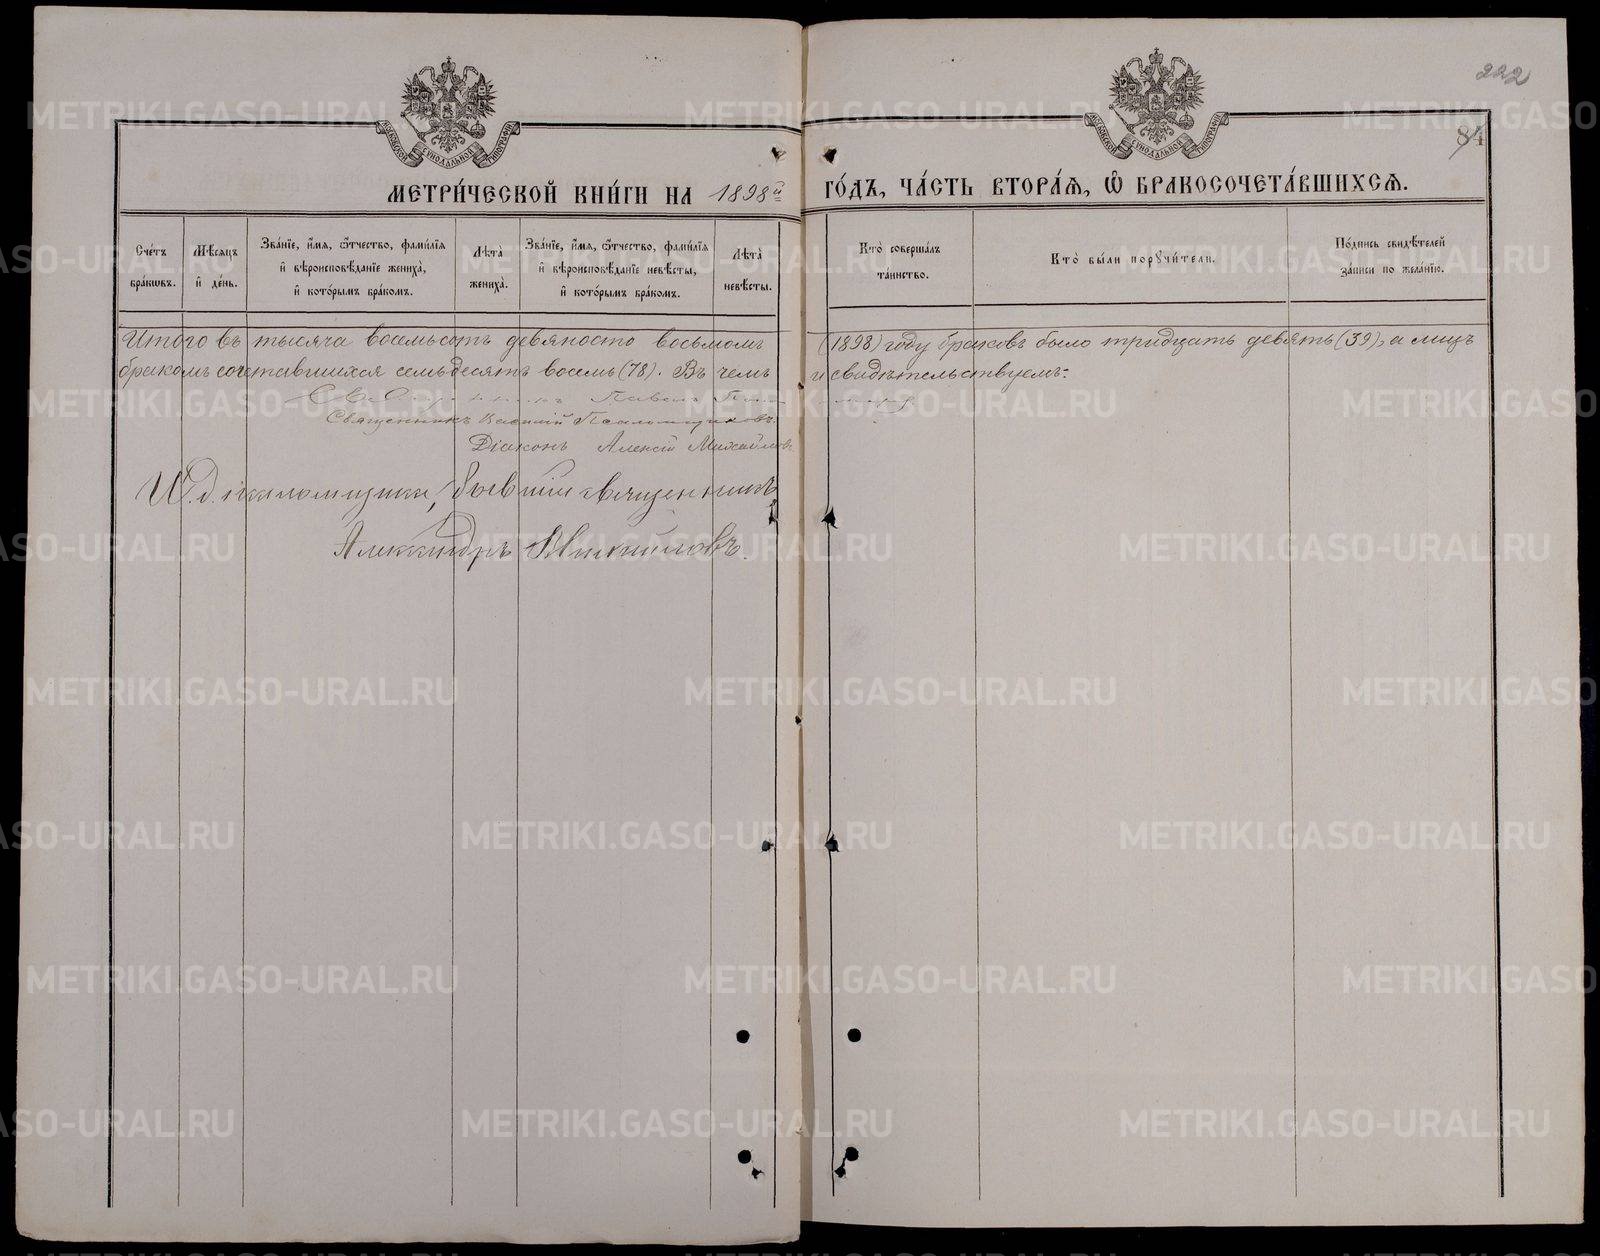 222
84
МОСКОВСКОЙ СѴНОДАЛЬНОЙ ТИПОГРАФІИ
МОСКОВСКОЙ СѴНОДАЛЬНОЙ ТИПОГРАФІИ
МЕТРИ́ЧЕСКОЙ КНИ́ГИ НА 1898й ГО́ДЪ, ЧА́СТЬ ВТОРА́Ѧ, Ѿ БРАКОСОЧЕТА́ВШИХСѦ.
Сче́тъ бра́кѡвъ.
Мѣ́сѧцъ и҆ де́нь.
Зва́нїе, и҆́мѧ, ѻ҆́тчество, фами́лїѧ и҆ вѣроисповѣ́данїе жениха̀, и҆ кото́рымъ бра́комъ.
Лѣ́та̀ жениха̀.
Зва́нїе, и҆́мѧ, ѻ҆́тчество, фами́лїѧ и҆ вѣроисповѣ́данїе невѣ́сты, и҆ кото́рымъ бра́комъ.
Лѣ́та̀ невѣ́сты.
Кто̀ соверша́лъ таинство.
Кто̀ были порꙋчи́тели.
По́дпись свидѣ́телей за́писи по жела́нїю.
Итого въ тысяча восемьсотъ девяносто восьмомъ (1898) году браковъ было тридцать девять (39), а лицъ
бракомъ сочетавшихся семьдесятъ восемь (78). Въ чемъ и свидѣтельствуемъ:
Священникъ Павелъ
Священникъ Василій Псаломщиковъ.
Діаконъ Алексій Михайловъ
И. д. псаломщика, бывшій священникъ
Александръ Михайловъ.
METRIKI.GASO-URAL.RU